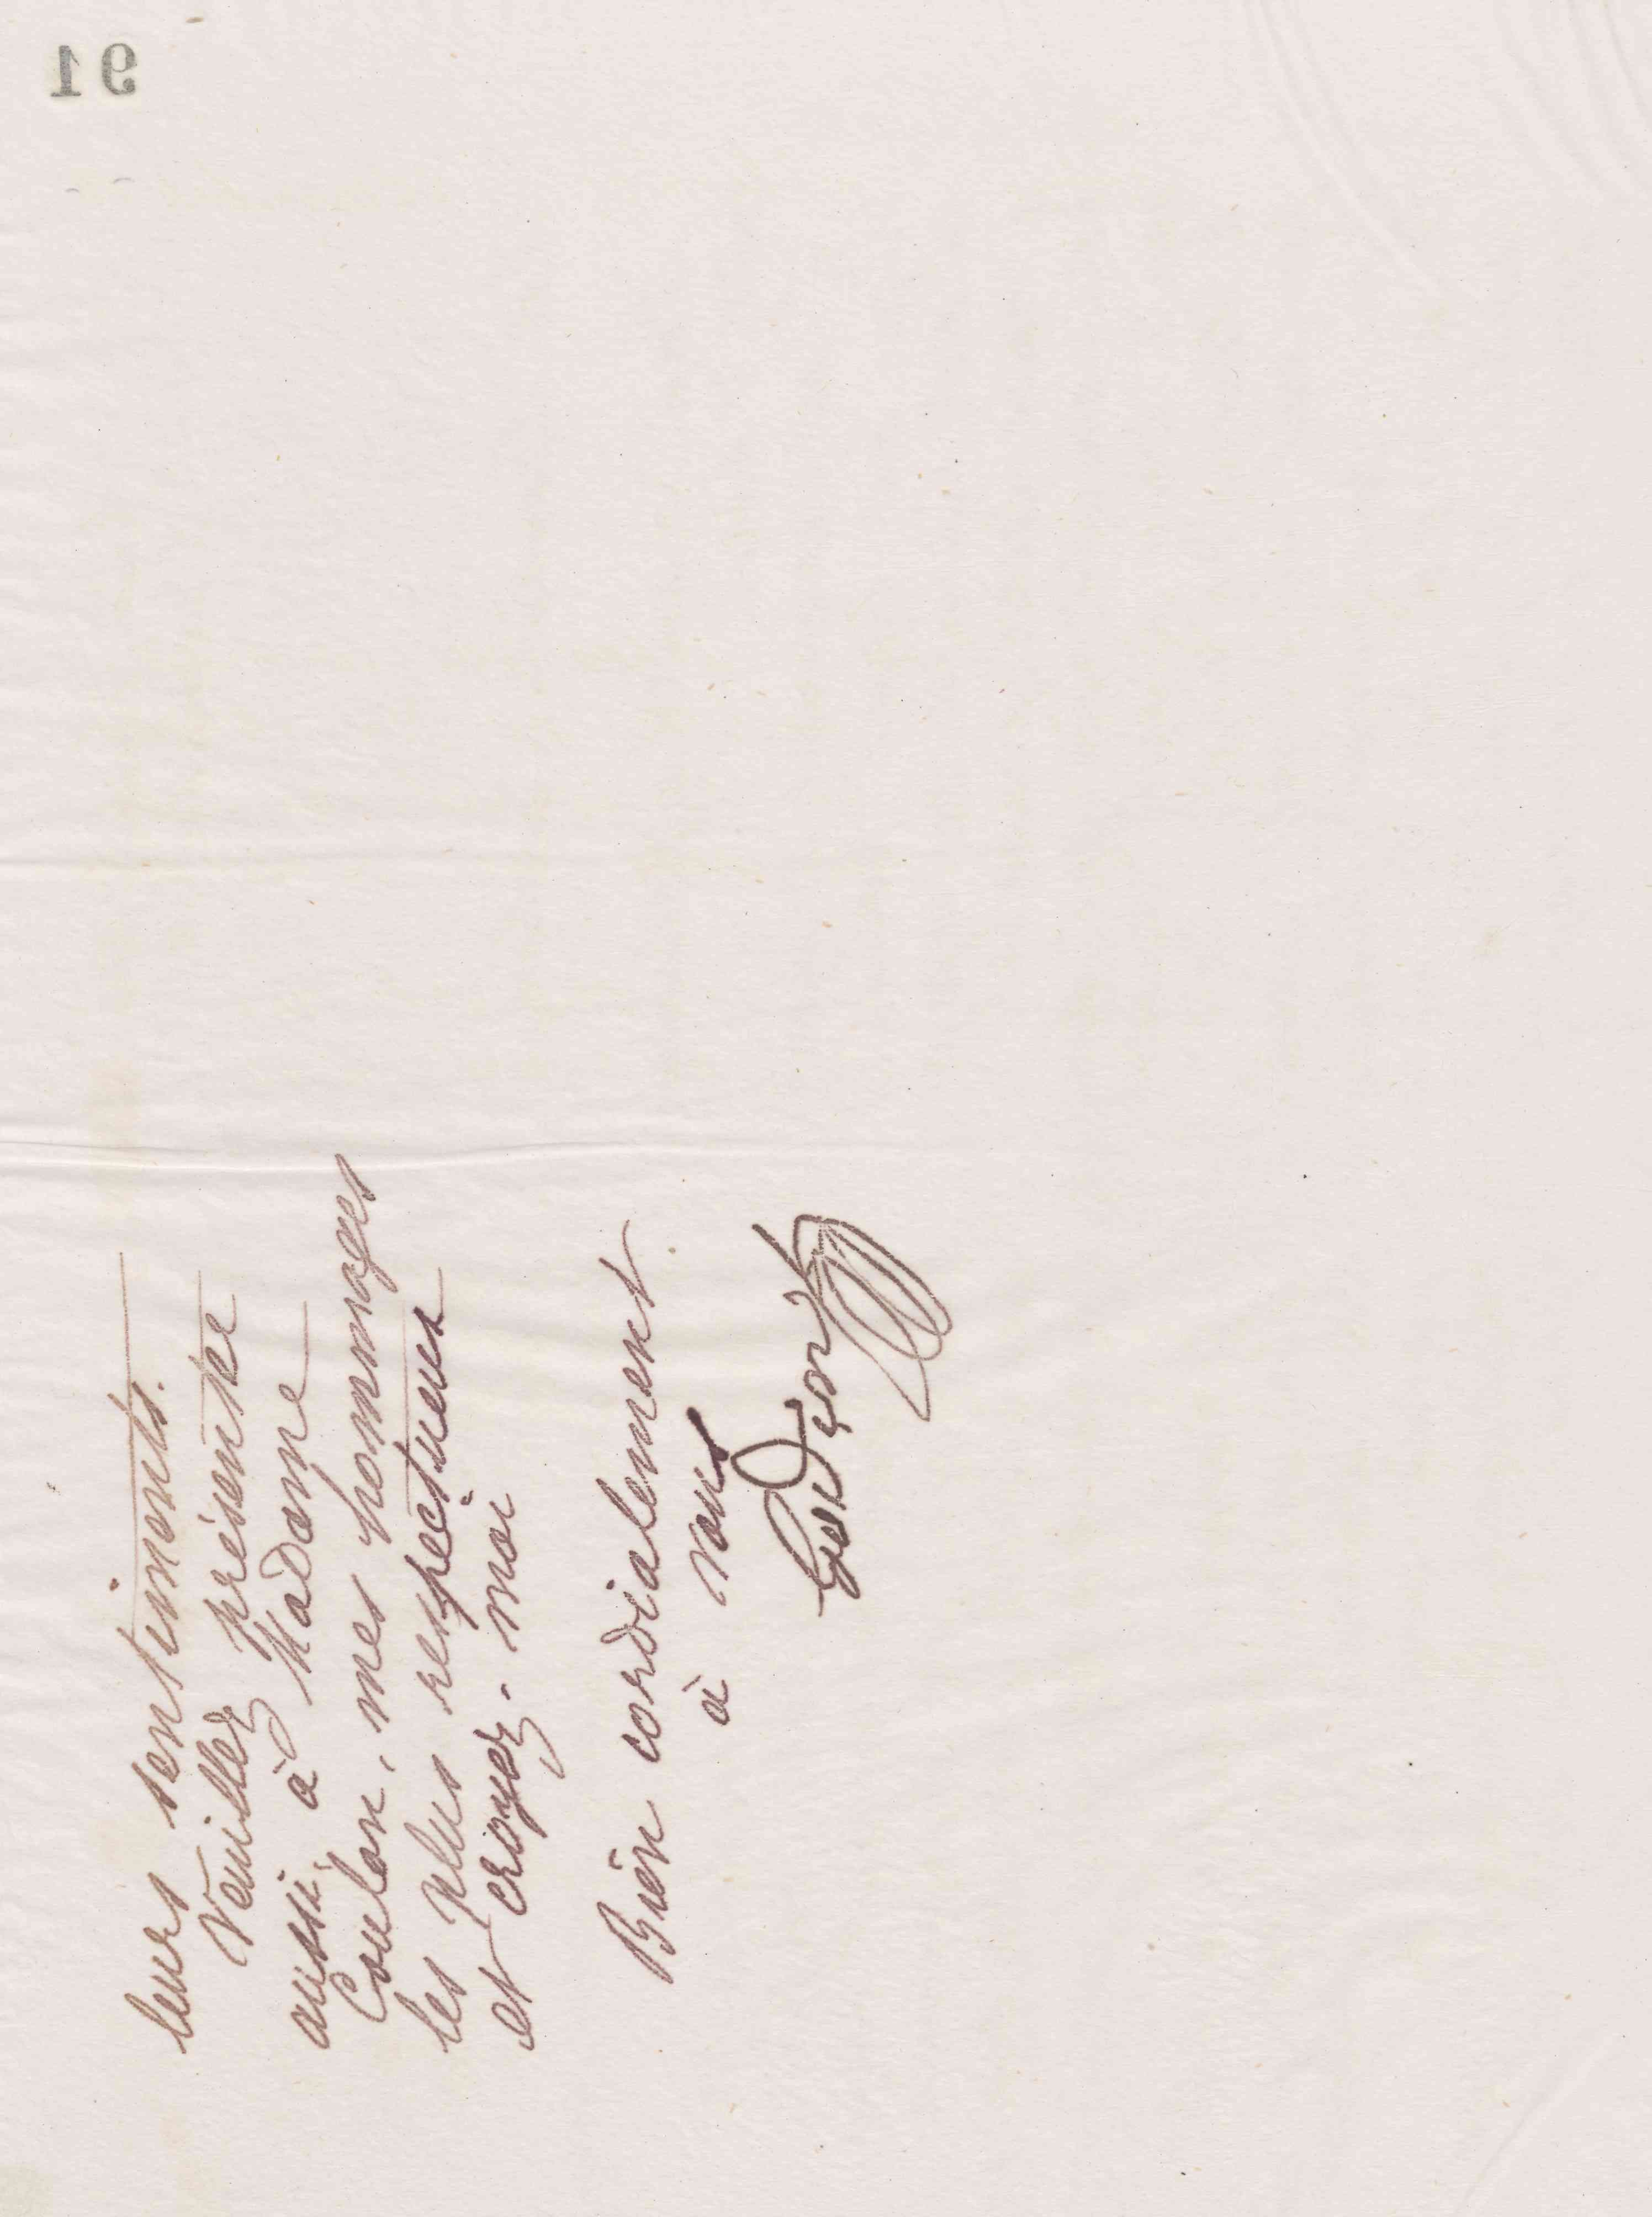 91
leurs sentiments.
Veuillez présenter
aussi, à Madame
Coulon, mes hommages
les plus respectueux
et croyez-moi
Bien cordialement
à vous
Godin